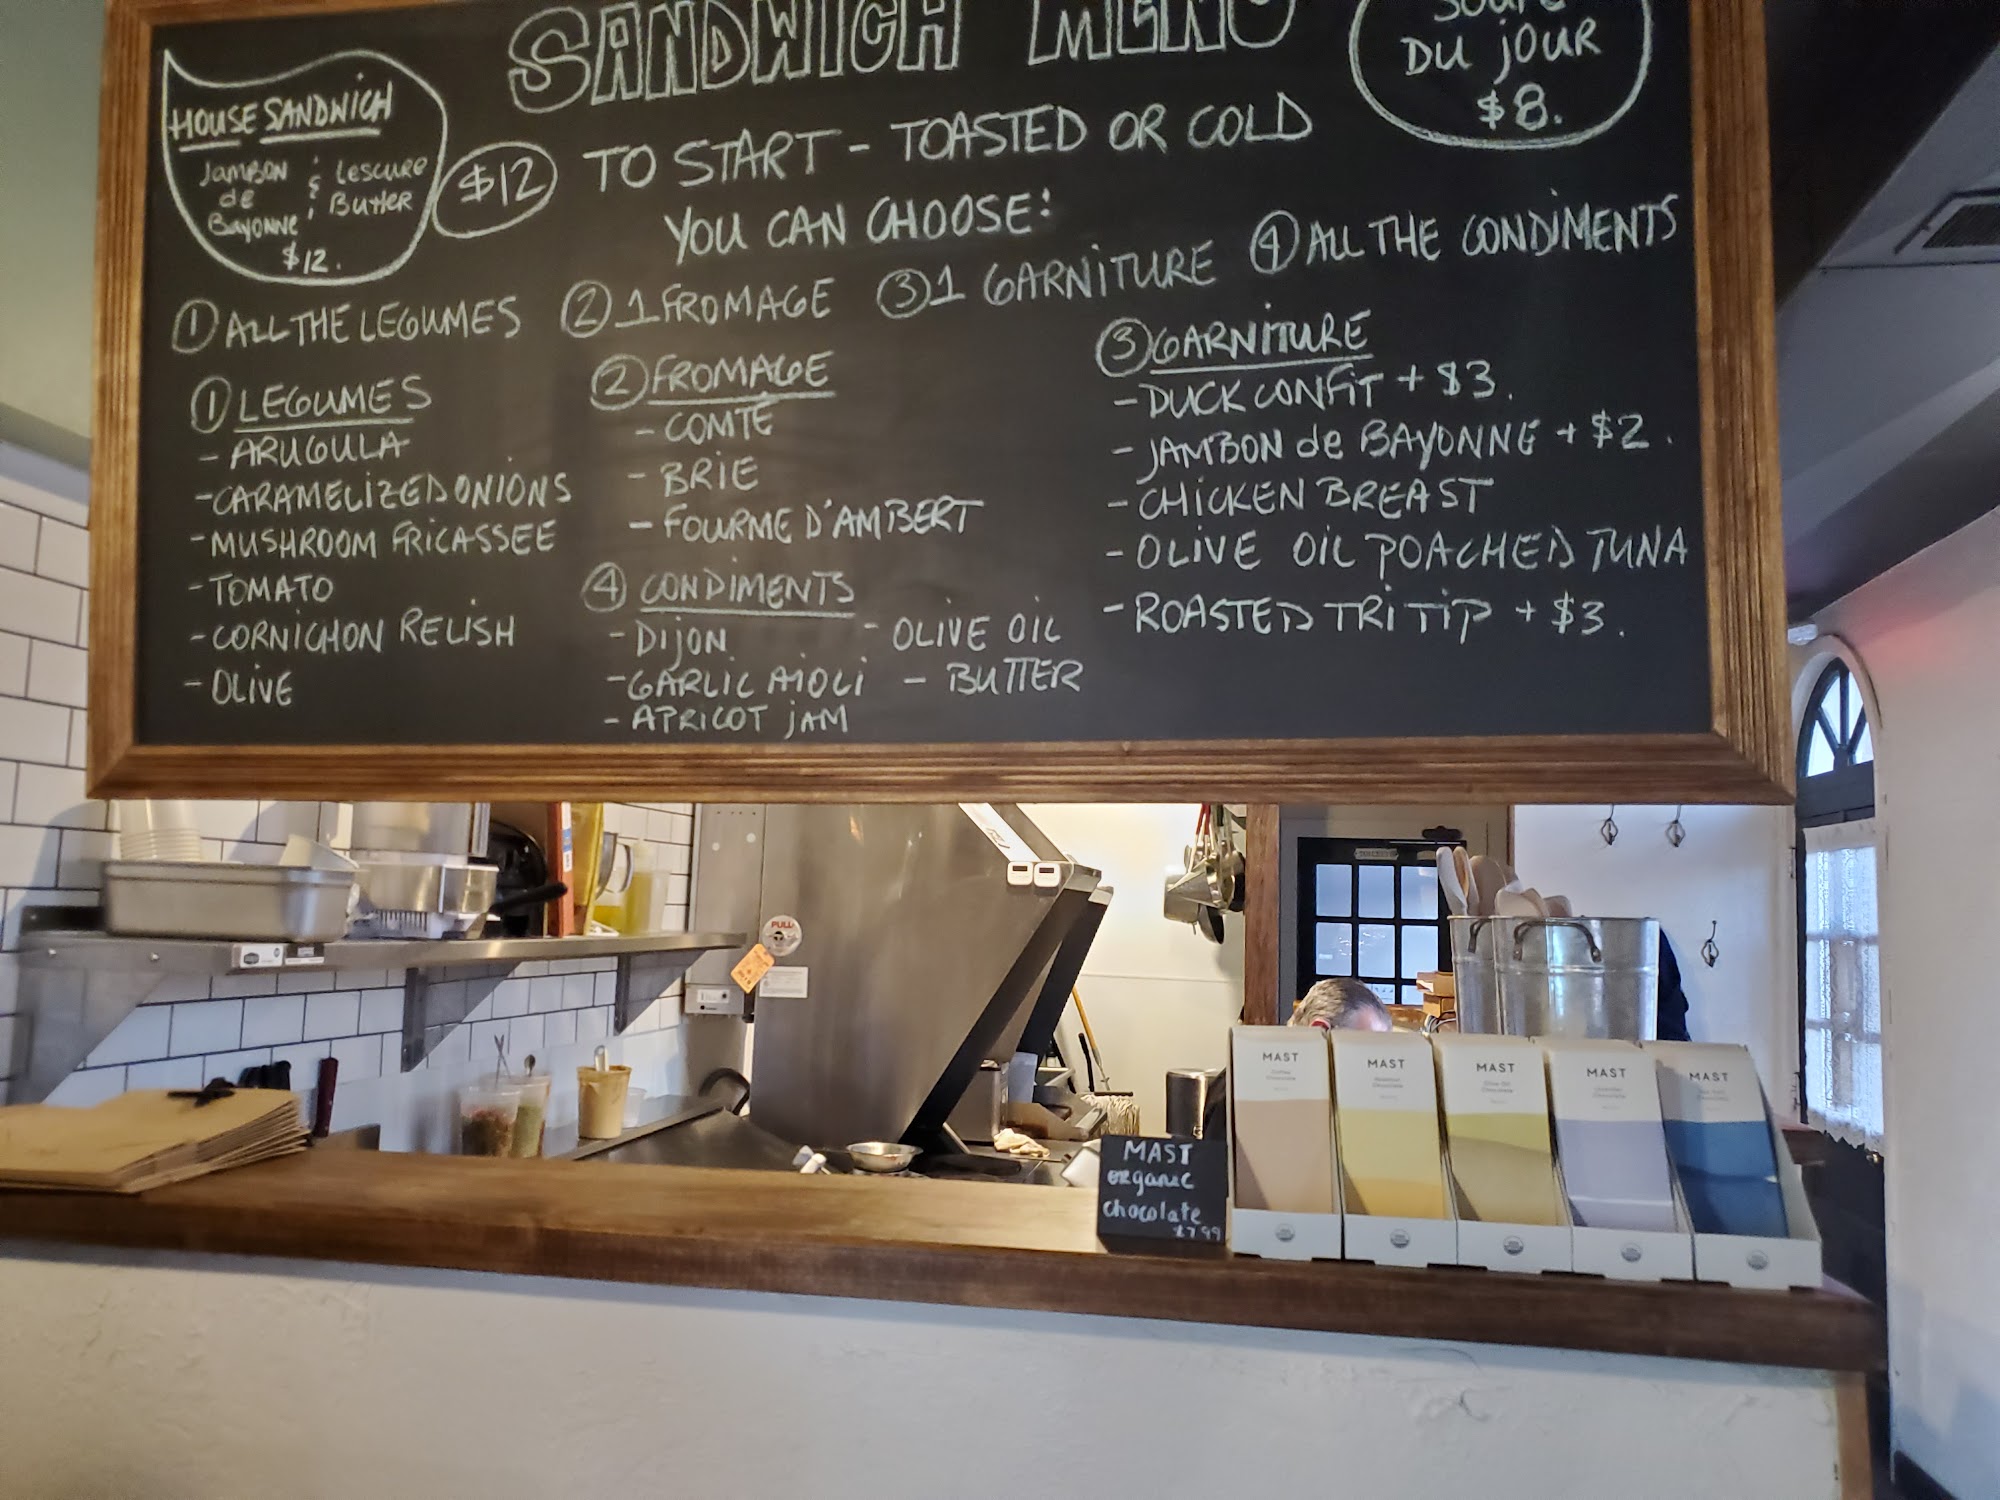 SANDWICH MENU
DU JOUR
$8.
HOUSE SANDWICH
Jambon & Lescure
de Butter
Bayonne
$12.
$12 TO START - TOASTED OR COLD
YOU CAN CHOOSE:
① ALL THE LEGUMES ② 1 FROMAGE ③ 1 GARNITURE ④ ALL THE CONDIMENTS
① LEGUMES
- ARUGULA
- CARAMELIZED ONIONS
- MUSHROOM FRICASSEE
- TOMATO
- CORNICHON RELISH
- OLIVE
② FROMAGE
- COMTÉ
- BRIE
- FOURME D'AMBERT
④ CONDIMENTS
- DIJON - OLIVE OIL
- GARLIC AIOLI - BUTTER
- APRICOT JAM
③ GARNITURE
- DUCK CONFIT + $3.
- JAMBON de BAYONNE + $2.
- CHICKEN BREAST
- OLIVE OIL POACHED TUNA
- ROASTED TRI TIP + $3.
PULL
MAST
organic
chocolate
$7.99
MAST
Coffee
Chocolate
MAST
Chocolate
MAST
Olive Oil
Chocolate
MAST
Chocolate
MAST